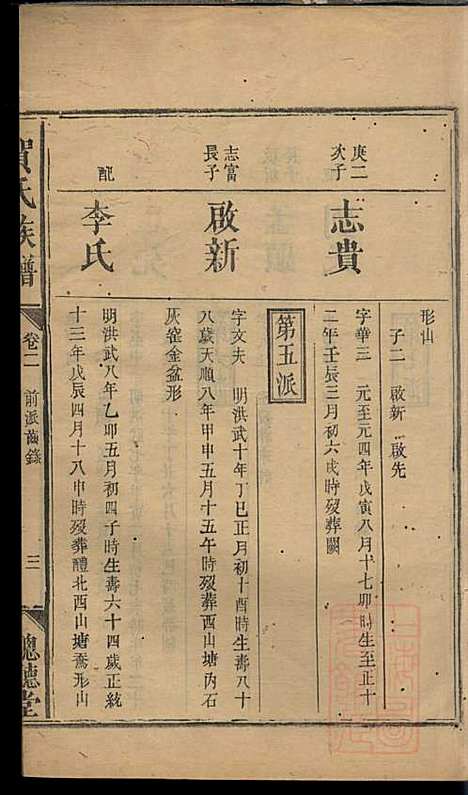 形山
子二 啟新 啟先
庚二
次子
志貴
字華三 元至元四年戊寅八月十七卯時生至正十
二年壬辰三月初六戌時歿葬闕
第五派
志富
長子
啟新
字文夫 明洪武十年丁巳正月初十酉時生壽八十
八歲天順八年甲申五月十五午時歿葬西山塘丙石
灰窑金盆形
配
李氏
明洪武八年乙卯五月初四子時生壽六十四歲正統
十三年戊辰四月十八申時歿葬醴北西山塘鴌形山
賀氏族譜
卷二 前派齒錄
三
德堂